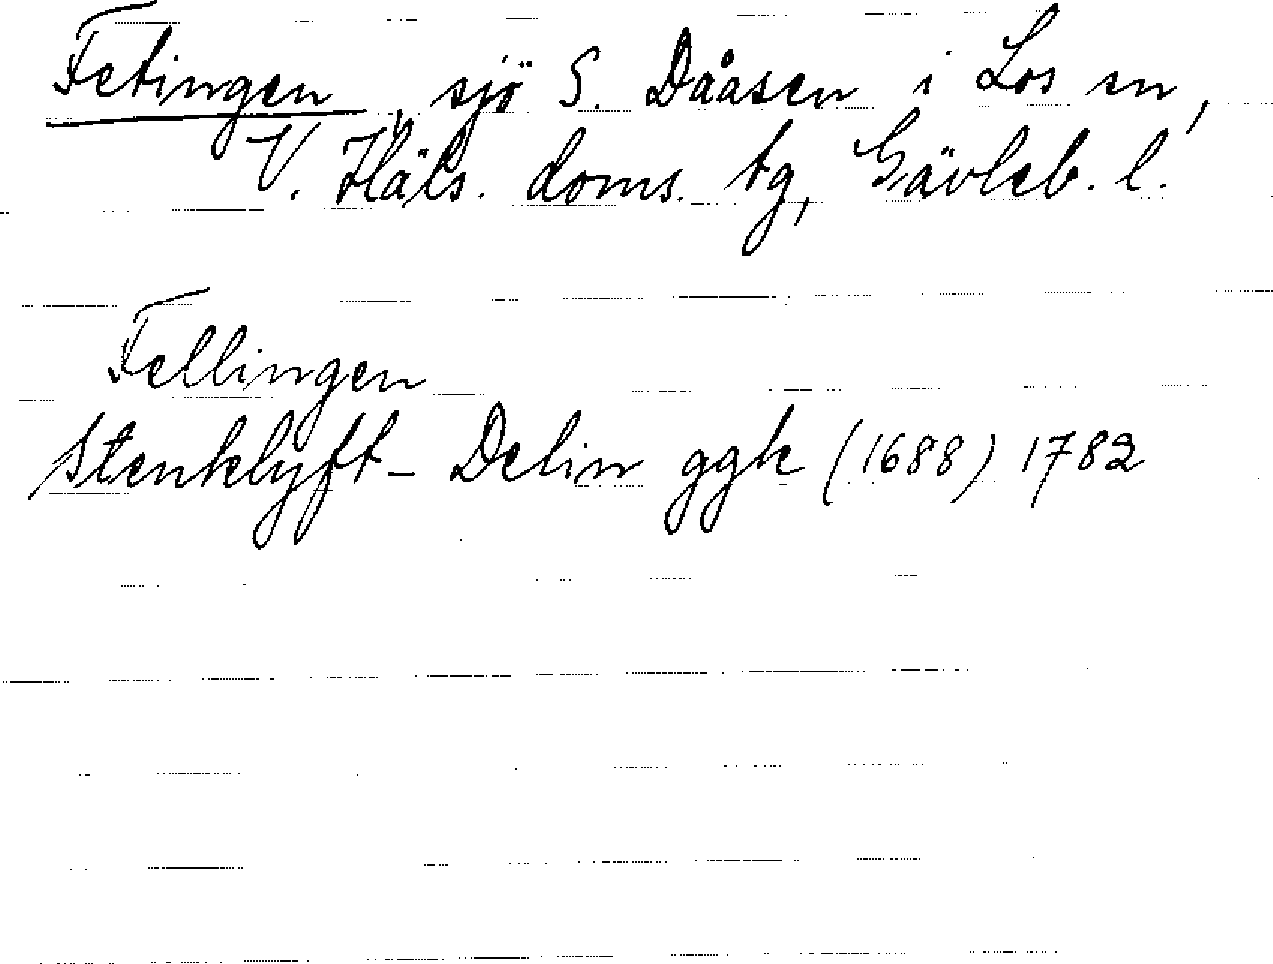 Fetingen, sjö S. Dåasen i Los sn,
V. Häls. doms. tg, Gävleb. l.
Fellingen
Stenklyft- Delin ggk (1688) 1782